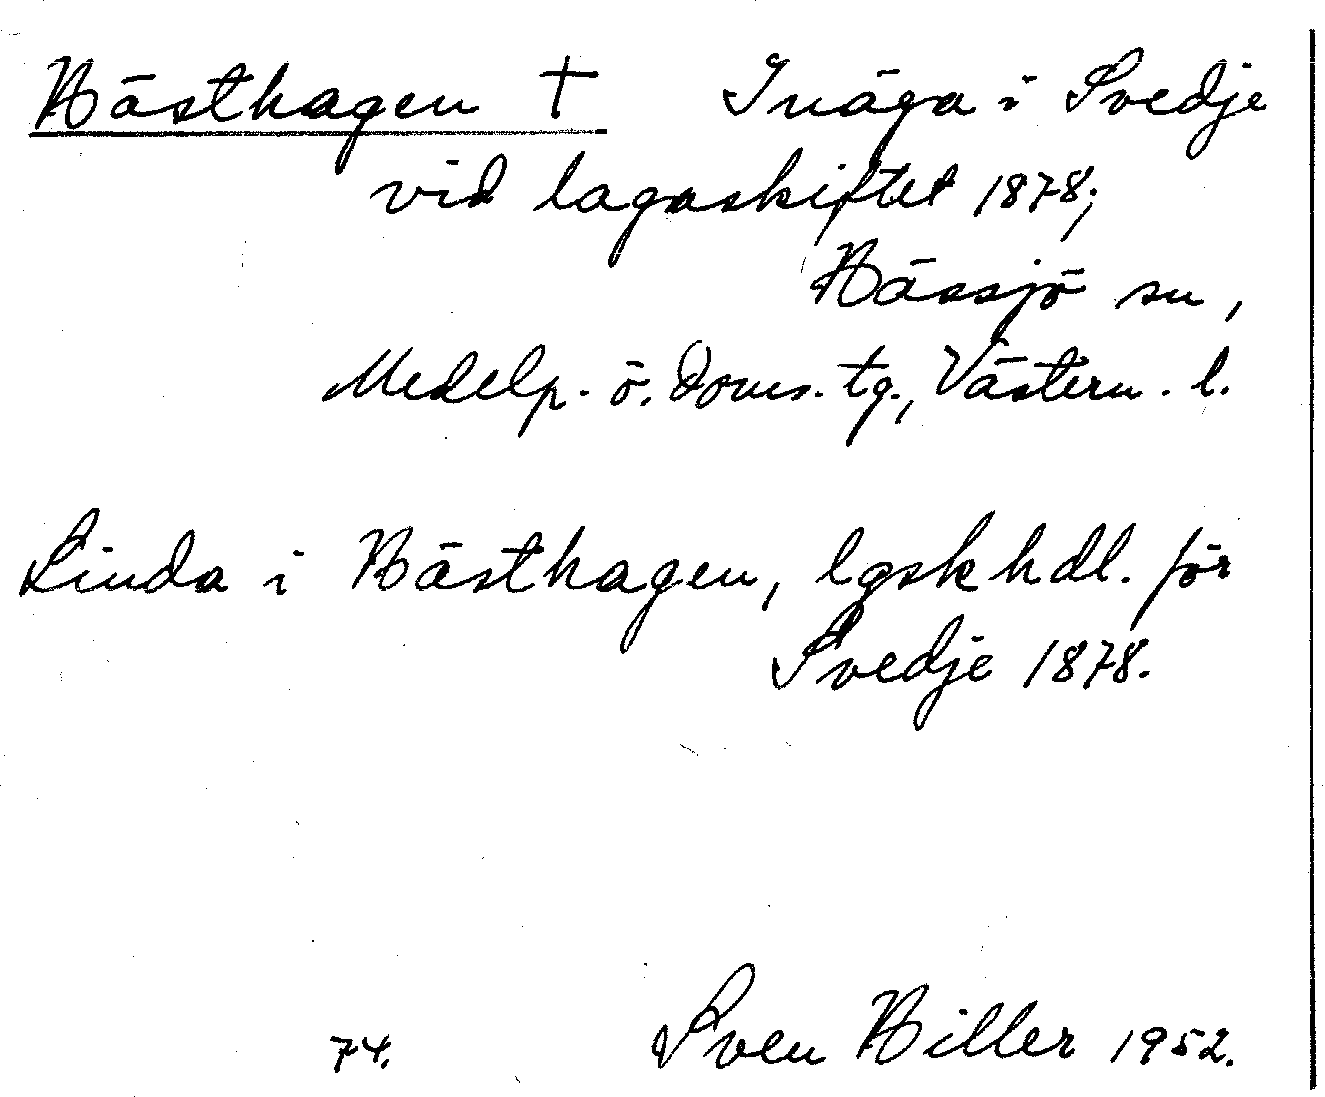 Hästhagen † Inäga i Svedje
vid lagaskiftet 1878;
Hässjö sn,
Medelp. ö. doms. tg., Västern. l.
Linda i Hästhagen, lgskhdl. för
Svedje 1878.
74. Sven Hiller 1952.